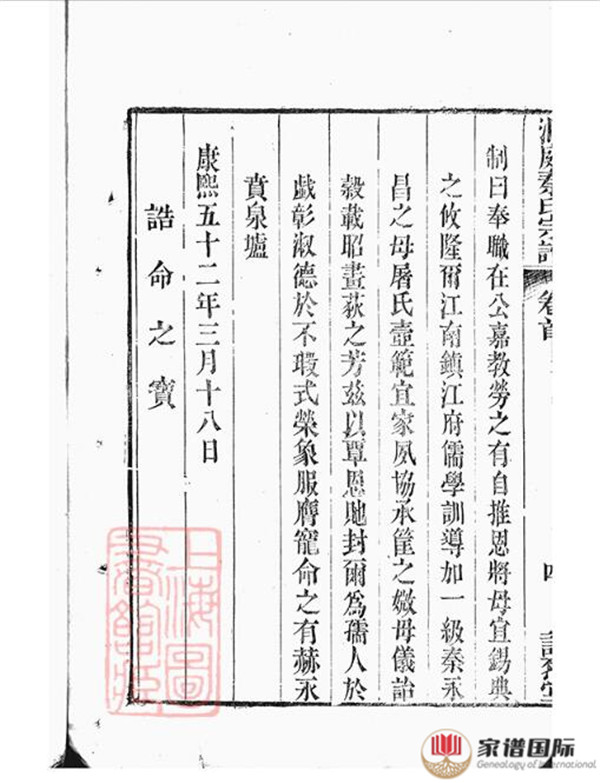 洞庭秦氏宗譜
卷首
四
制曰奉職在公嘉教勞之有自推恩將母宜錫典
之攸隆爾江南鎮江府儒學訓導加一級秦永
昌之母屠氏壼範宜家夙協承筐之媺母儀詒
榖載昭畫荻之芳兹以覃恩貤封爾爲孺人於
戱彰淑德於不瑕式榮象服膺寵命之有赫永
賁泉壚
康熙五十二年三月十八日
誥命之寶
上海圖
書館藏
家谱国际
Genealogy of International